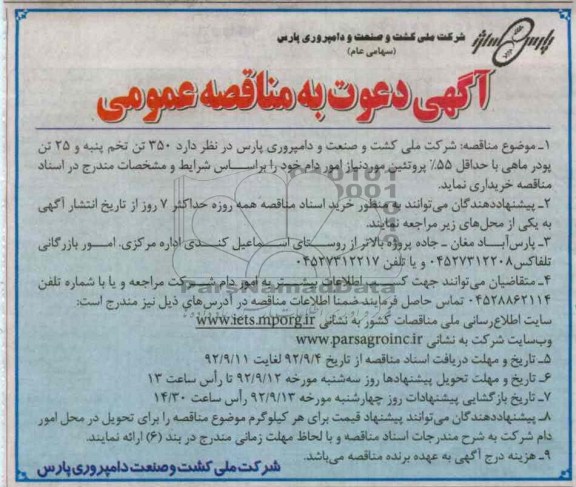 پارس
شرکت ملی کشت و صنعت و دامپروری پارس
(سهامی عام)
آگهی دعوت به مناقصه عمومی
۱ـ موضوع مناقصه: شرکت ملی کشت و صنعت و دامپروری پارس در نظر دارد ۳۵۰ تن تخم پنبه و ۲۵ تن
پودر ماهی با حداقل ۵۵٪ پروتئین موردنیاز امور دام خود را براساس شرایط و مشخصات مندرج در اسناد
مناقصه خریداری نماید.
۲ـ پیشنهاددهندگان می‌توانند به منظور خرید اسناد مناقصه همه روزه حداکثر ۷ روز از تاریخ انتشار آگهی
به یکی از محل‌های زیر مراجعه نمایند.
۳ـ پارس‌آباد مغان ـ جاده پروژه بالاتر از روستای اسماعیل کندی اداره مرکزی. امور بازرگانی
تلفاکس ۰۴۵۲۷۳۱۲۲۰۸ و یا تلفن ۰۴۵۲۷۳۱۲۲۱۷
۴ـ متقاضیان می‌توانند جهت کسب اطلاعات بیشتر به امور دام شرکت مراجعه و یا با شماره تلفن
۰۴۵۲۸۸۶۲۱۱۴ تماس حاصل فرمایند.ضمنا اطلاعات مناقصه در آدرس‌های ذیل نیز مندرج است:
سایت اطلاع‌رسانی ملی مناقصات کشور به نشانی www.iets.mporg.ir
وب‌سایت شرکت به نشانی www.parsagroinc.ir
۵ـ تاریخ و مهلت دریافت اسناد مناقصه از تاریخ ۹۲/۹/۴ لغایت ۹۲/۹/۱۱
۶ـ تاریخ و مهلت تحویل پیشنهادها روز سه‌شنبه مورخه ۹۲/۹/۱۲ تا رأس ساعت ۱۳
۷ـ تاریخ بازگشایی پیشنهادات روز چهارشنبه مورخه ۹۲/۹/۱۳ رأس ساعت ۱۴/۳۰
۸ـ پیشنهاددهندگان می‌توانند پیشنهاد قیمت برای هر کیلوگرم موضوع مناقصه را برای تحویل در محل امور
دام شرکت به شرح مندرجات اسناد مناقصه و با لحاظ مهلت زمانی مندرج در بند (۶) ارائه نمایند.
۹ـ هزینه درج آگهی به عهده برنده مناقصه می‌باشد.
شرکت ملی کشت و صنعت دامپروری پارس
ParsNamadData